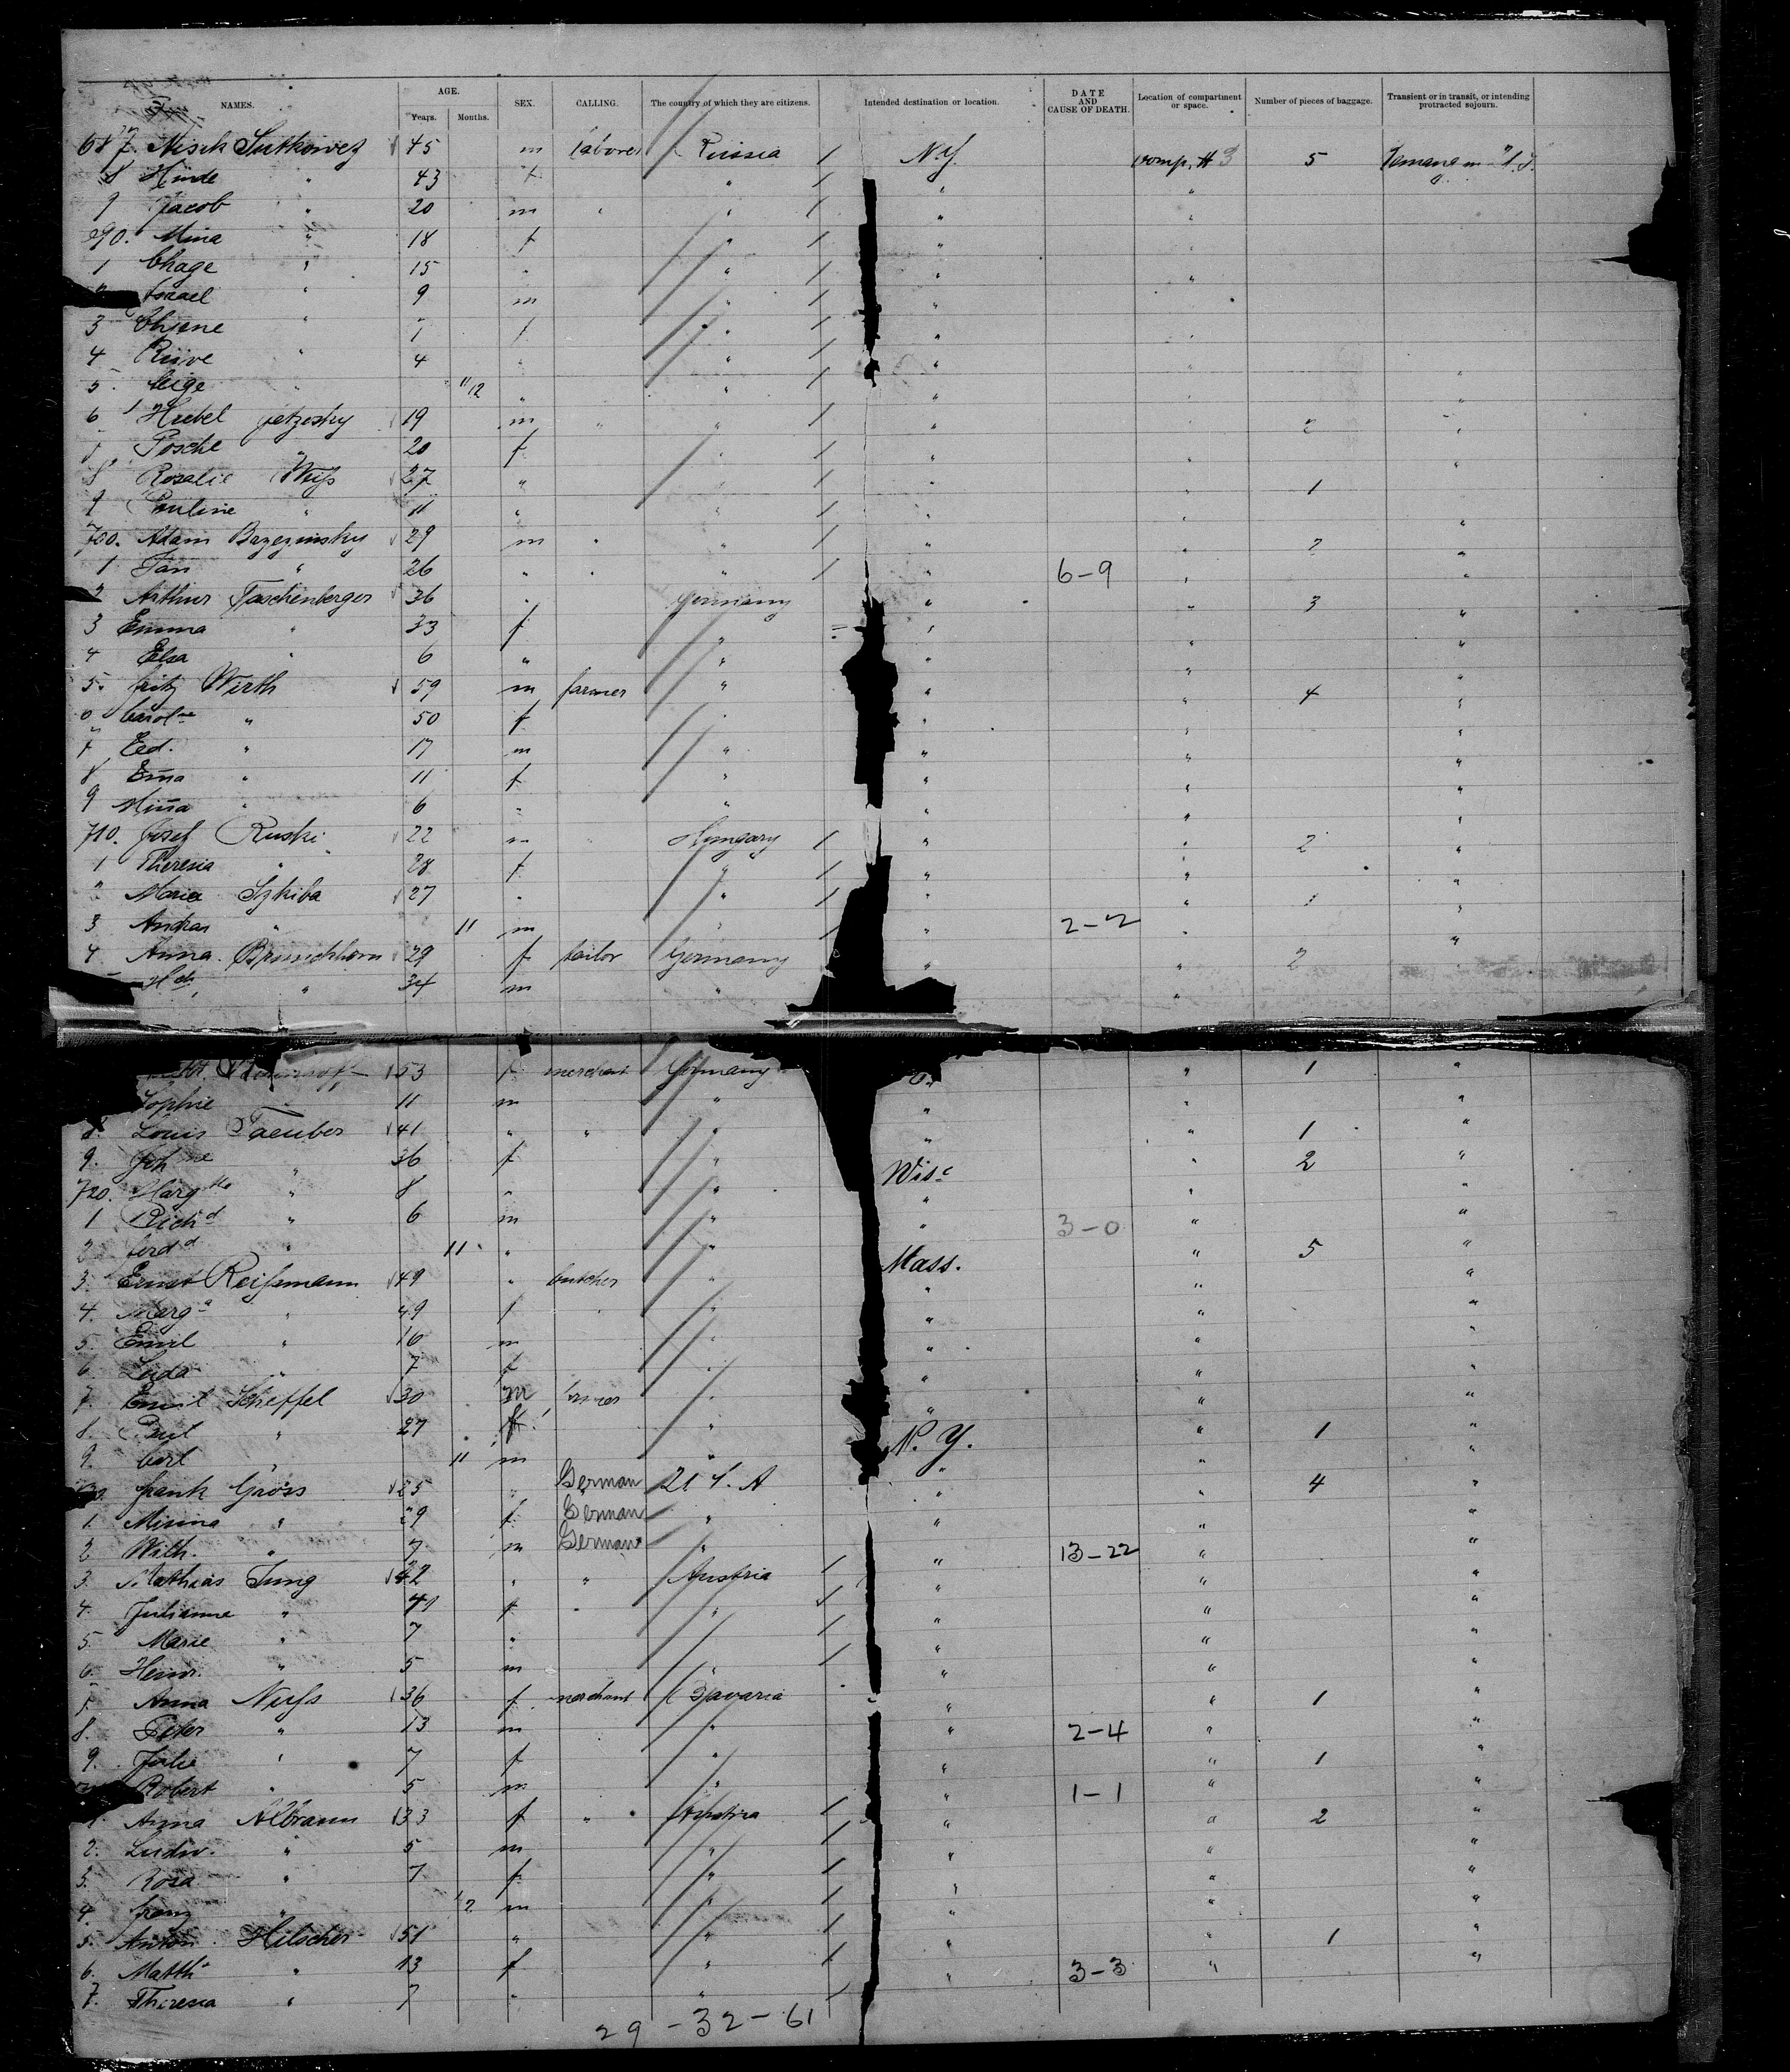 NAMES. AGE. Years. Months. SEX. CALLING. The country of which they are citizens. Intended destination or location. DATE AND CAUSE OF DEATH. Location of compartment or space. Number of pieces of baggage. Transient or in transit, or intending protracted sojourn.
687 Sutkowez 45 m laborer Russia 1 N.Y. comp. # 3 5
8 Hinde " 43 f " 1 " "
9 Jacob " 20 m " " 1 " "
690. Mina " 18 f " 1 " "
1 Chage " 15 " " 1 " "
Israel " 9 m " 1 "
3 " f " 1 " "
4 " 4 " " 1 " "
5 " 11/12 " " 1 " " "
6 19 m " " 1 " " 2 "
Posche " 20 f " 1 " " "
8 Rosalie Weiss 27 " " 1 " " 1
9 Pauline " 11 " " 1 " " "
700. Adam Brzezinsky 29 m " " 1 " " 2 "
1 Jan " 26 " " " 1 " 6-9 " "
2 Arthur Taschenberger 36 " Germany " " 3 "
3 Emma " 33 f " " " "
4 Elsa " 6 " " " " "
5. Fritz Wirth 59 m farmer " " " 4 "
6 Carolne " 50 f " " " "
7 Ed. " 17 m " " " "
8 Em̄a " 11 f " " " "
9 Min̄a " 6 " " " " "
710. Josef Ruski 22 m " Hungary 1 " " 2 "
1 Theresia " 28 f " 1 " " "
2 Maria Szkiba 27 " " 1 " " 1 "
3 Andras " 11 m " 1 " 2-2 " "
4 Anna Brunchhorn 29 f tailor Germany " " 2 "
" 34 m " "
53 f merchant Germany " 1 "
Sophie " 11 m " " " "
8. Louis Taeuber 41 " " " " " 1 "
9. Johne " 36 f " Wisc " 2 "
720. Margthe " 8 " " " " "
1 Richd " 6 m " " 3-0 " "
2 Ferdd " 11 " " Mass. " 5 "
3. Ernst Reissmann 49 " butcher " " " "
4. Marga " 49 f " " " " "
5. Emil " 16 m " " " "
6. " 7 f " " " "
7. Emil Scheffel 30 m " " " "
8. " 27 f " N. Y. " 1 "
9. Carl " 11 m " " " "
Frank Gross 25 " German U S. A " " 4 "
1. Minna " 29 f German " " " "
2 Wilh. " 7 m German " " 13-22 " "
3. Mathias Jung 42 " " Austria 1 " " "
4. Julianne " 41 f " " 1 " " "
5. Marie " 7 " " 1 " " "
6. Heinr. " 5 m " 1 " " "
7 Anna Nuss 36 f merchant Bavaria " " 1 "
8. Peter " 13 m " " 2-4 " "
9. Julie " 7 f " " " 1 "
Robert " 5 m " " 1-1 " "
1. Anna Albraum 33 f " Austria 1 " " 2 "
2. Ludw. " 5 m " 1 " " "
3. Rosa " 7 f " 1 " " "
4. Franz " m " 1 " " "
5. Anton Hilscher 51 " " 1 " " 1 "
6. Matth. " 13 f " 1 " 3-3 " "
7. Theresia " 7 " " 1
29 - 32 - 61